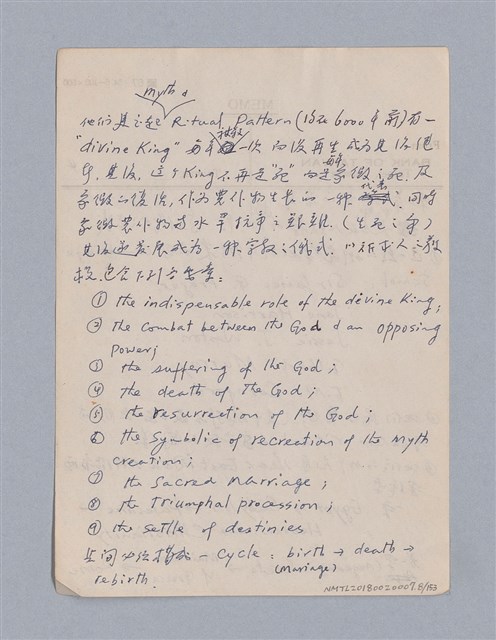 myth &
他们建立起 Ritual Pattern (约在 6000 年前) 有一
"divine King" 每年被殺一次 而後再生 成为
年, 其後, 这个 King 不再是 "死" 而是每年象徵之死, 及
象徵的復活, 作为農作物生長的一种代表 同時
象徵農作物与水旱抗爭之艱難. (生死之争)
其後逐发展成为一种宗教之仪式. 以祈求人之
包含下列各要素:
① the indispensable role of the divine King;
② the Combat between the God & an opposing
Power;
③ the suffering of the God;
④ the death of The God;
⑤ the resurrection of the God;
⑥ the Symbolic of recreation of the myth
creation;
⑦ the Sacred Marriage;
⑧ the Triumphal procession;
⑨ the settle of destinies
其间 构成一 Cycle: birth → death →
(Marriage)
rebirth
NMTL20180020007.8/153
MEMO
BANK OF TAIWAN